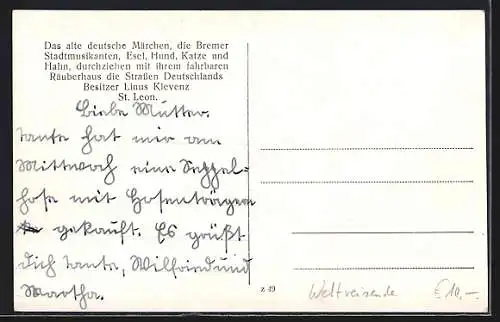 Das alte deutsche Märchen, die Bremer
Stadtmusikanten, Esel, Hund, Katze und
Hahn, durchziehen mit ihrem fahrbaren
Räuberhaus die Straßen Deutschlands
Besitzer Linus Klevenz
St. Leon.
Liebe Mutter.
Tante hat mir am
Mittwoch eine Seppel-
hose mit Hosenträgern
gekauft. Es grüßt
dich Tante, Wilfried und
Martha.
z 49
Weltreisende €10,-